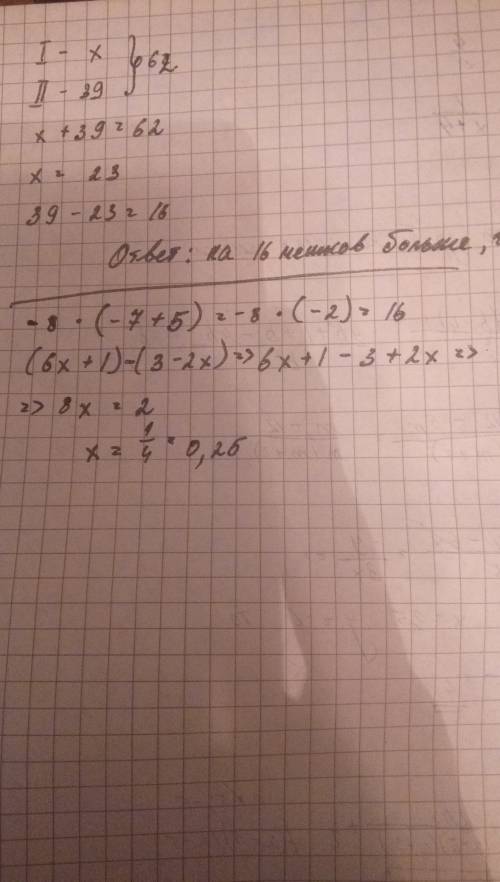 I - x } 62
II - 39
x + 39 = 62
x = 23
39 - 23 = 16
Ответ: на 16 мешков больше,
-8 · (-7+5) = -8 · (-2) = 16
(6x+1)-(3-2x) => 6x+1-3+2x =>
=> 8x = 2
x = 1/4 = 0,25